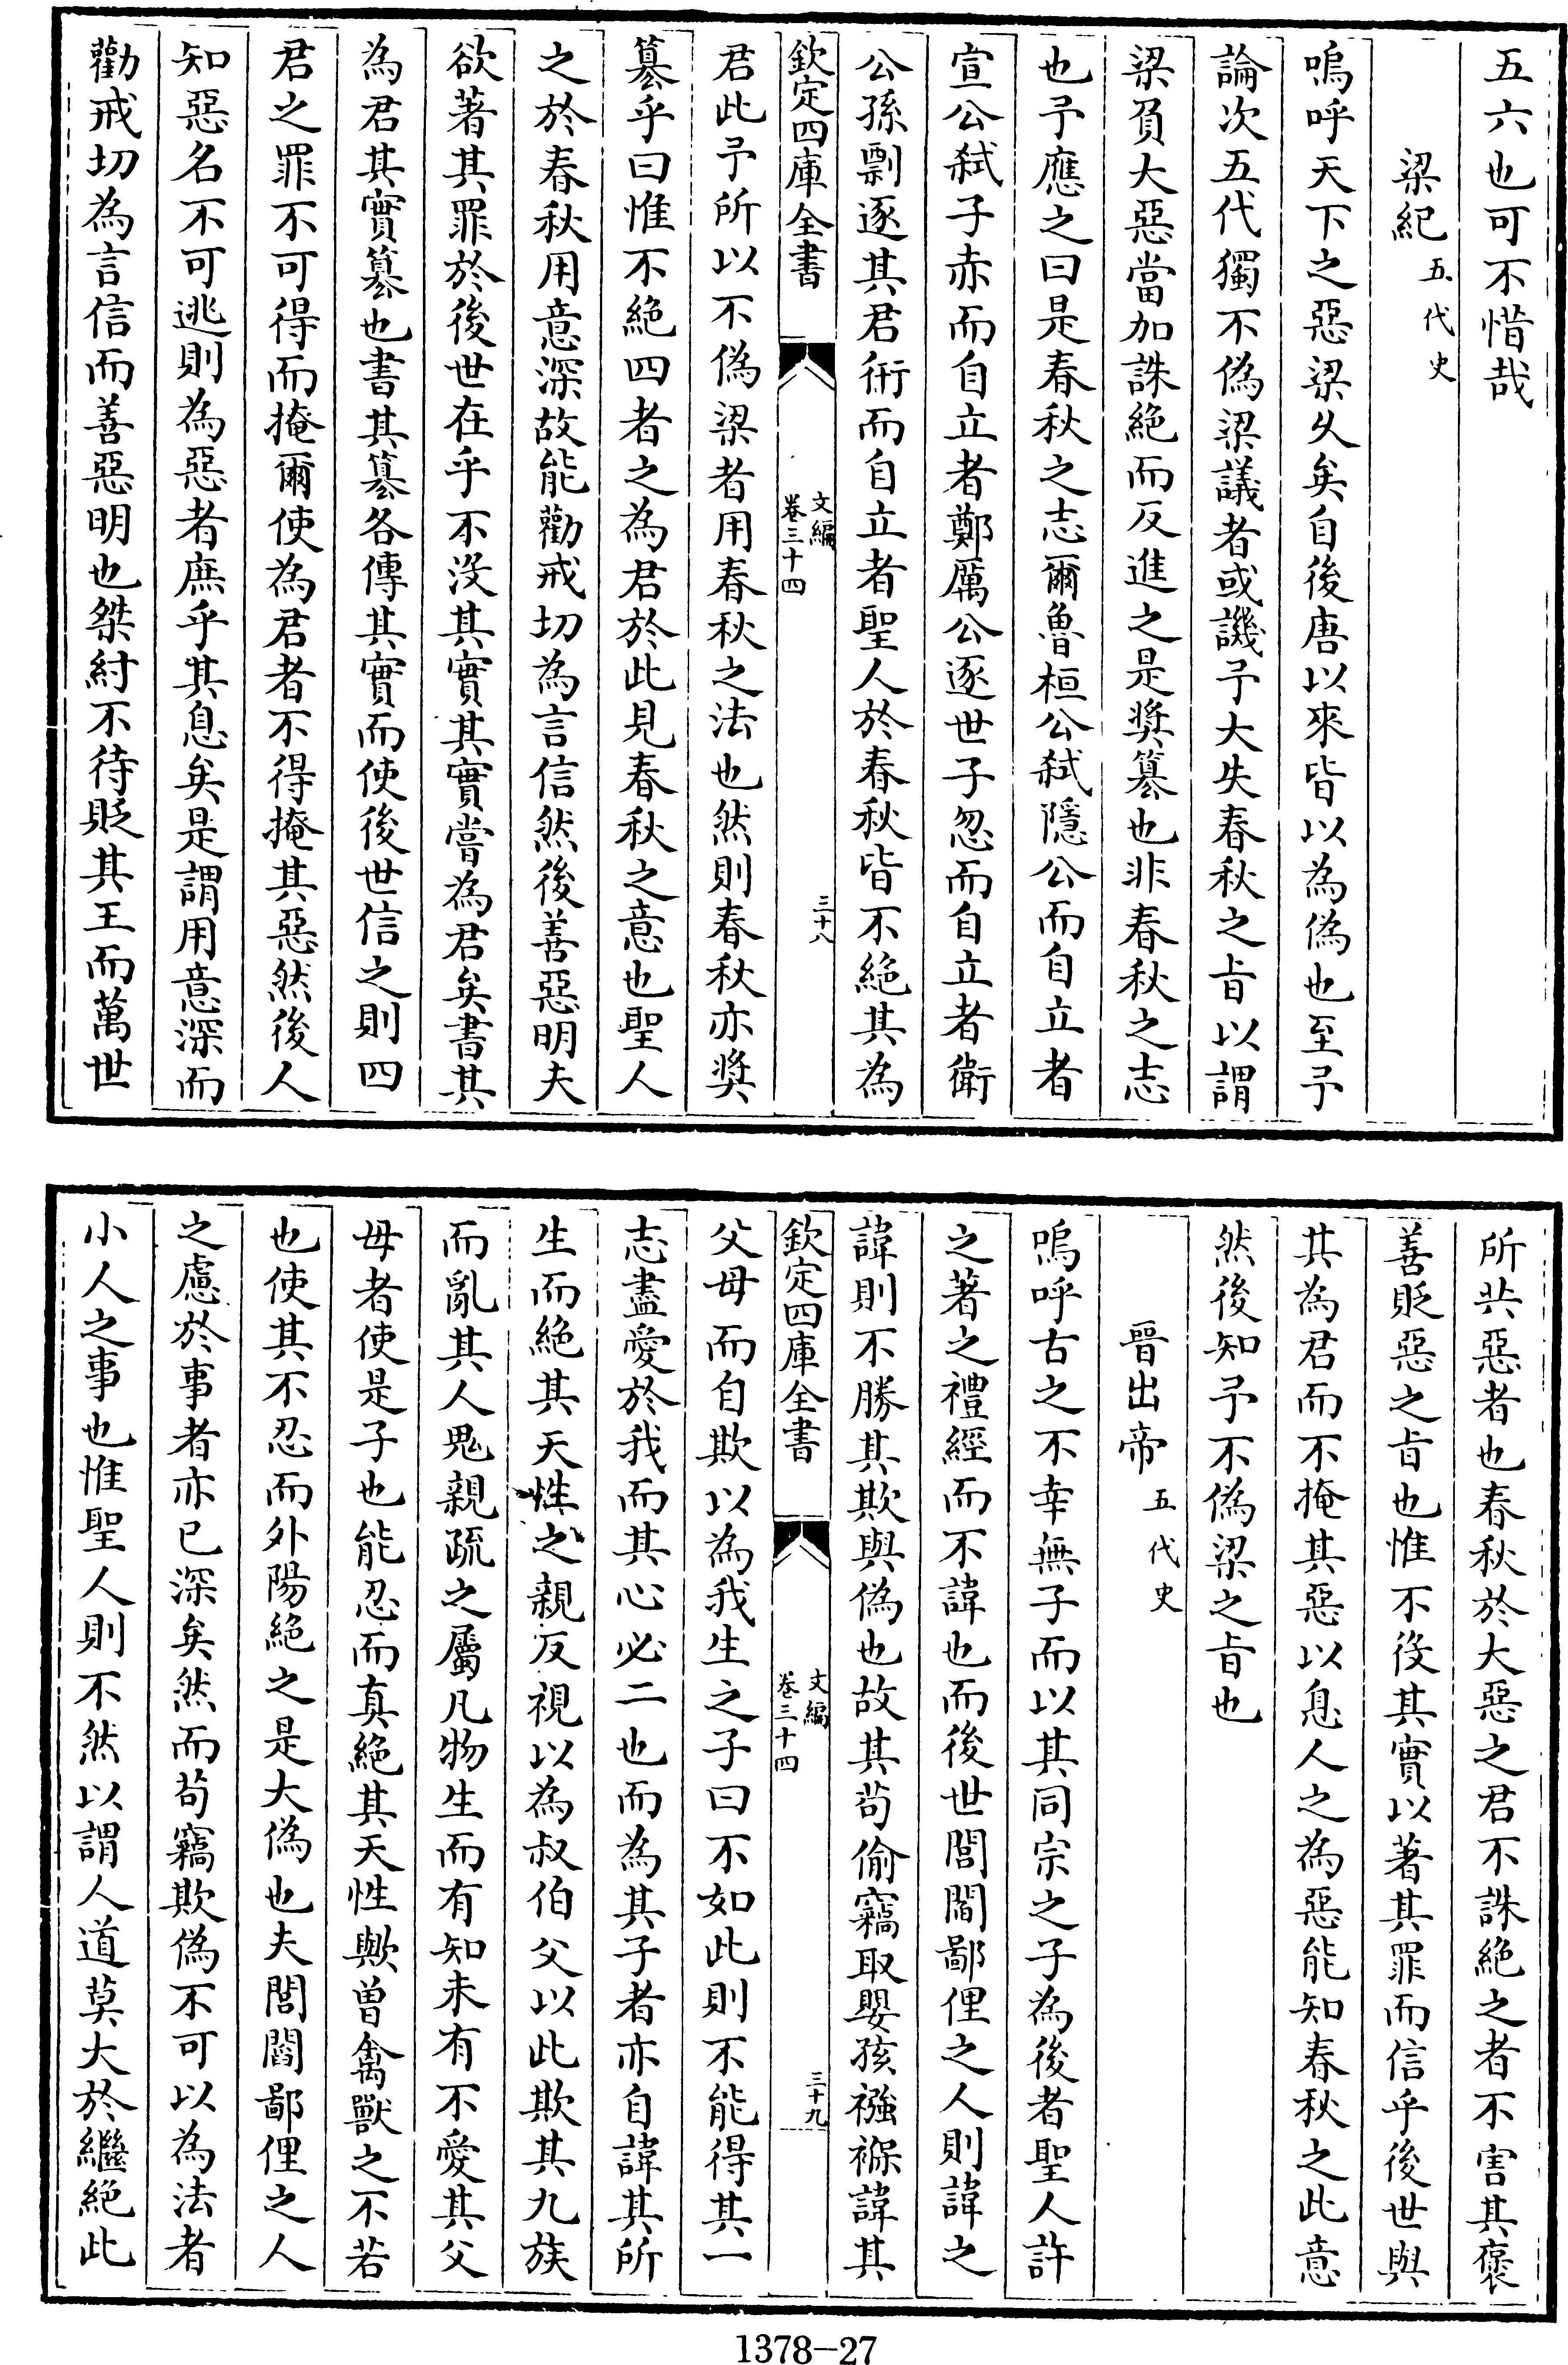 五六也可不惜哉
梁紀五代史
嗚呼天下之惡梁乆矣自後唐以來皆以為偽也至予
論次五代獨不偽梁議者或譏予大失春秋之㫖以謂
梁負大惡當加誅絶而反進之是奬簒也非春秋之志
也予應之曰是春秋之志爾魯桓公弑隱公而自立者
宣公弑子赤而自立者鄭厲公逐世子忽而自立者衛
公孫剽逐其君衎而自立者聖人於春秋皆不絶其為
欽定四庫全書
文編
卷三十四
三十八
君此予所以不偽梁者用春秋之法也然則春秋亦奬
簒乎曰惟不絶四者之為君於此見春秋之意也聖人
之於春秋用意深故能勸戒切為言信然後善惡明夫
欲著其罪於後世在乎不没其實其實嘗為君矣書其
為君其實簒也書其簒各傳其實而使後世信之則四
君之罪不可得而掩爾使為君者不得掩其惡然後人
知惡名不可逃則為惡者庶乎其息矣是謂用意深而
勸戒切為言信而善惡明也桀紂不待貶其王而萬世
所共惡者也春秋於大惡之君不誅絶之者不害其褒
善貶惡之㫖也惟不没其實以著其罪而信乎後世與
其為君而不掩其惡以息人之為惡能知春秋之此意
然後知予不偽梁之㫖也
晉出帝五代史
嗚呼古之不幸無子而以其同宗之子為後者聖人許
之著之禮經而不諱也而後世閭閻鄙俚之人則諱之
諱則不勝其欺與偽也故其苟偷竊取嬰孩襁褓諱其
欽定四庫全書
文編
卷三十四
三十九
父母而自欺以為我生之子曰不如此則不能得其一
志盡愛於我而其心必二也而為其子者亦自諱其所
生而絶其天性之親反視以為叔伯父以此欺其九族
而亂其人鬼親疏之屬凡物生而有知未有不愛其父
母者使是子也能忍而真絶其天性歟曾禽獸之不若
也使其不忍而外陽絶之是大偽也夫閭閻鄙俚之人
之慮於事者亦已深矣然而苟竊欺偽不可以為法者
小人之事也惟聖人則不然以謂人道莫大於繼絶此
1378-27